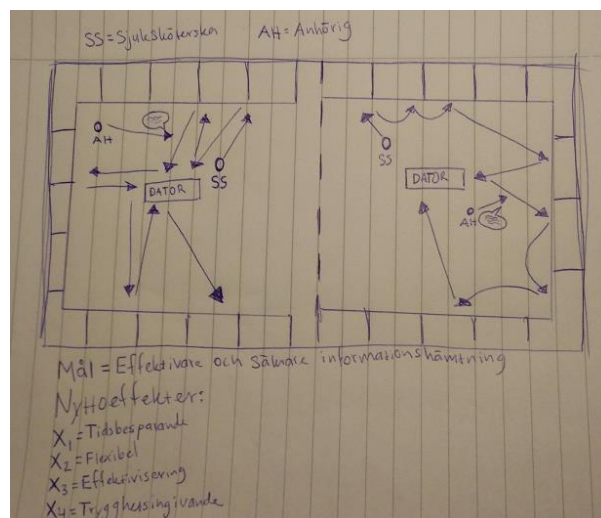 SS = Sjuksköterska AH = Anhörig
AH
SS
DATOR
SS
DATOR
AH
Mål = Effektivare och säkrare informationshämtning
Nyttoeffekter:
X1 = Tidsbesparande
X2 = Flexibel
X3 = Effektivisering
X4 = Trygghetsingivande